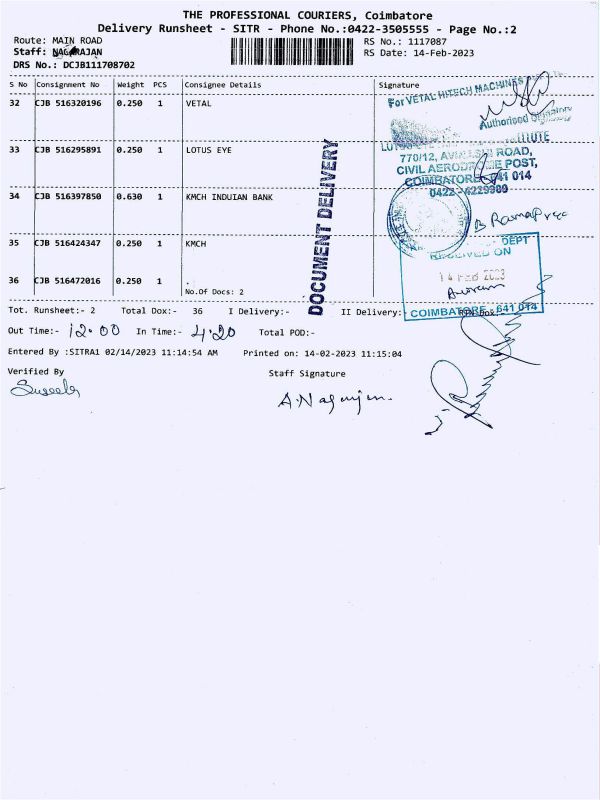 THE PROFESSIONAL COURIERS, Coimbatore
Delivery Runsheet - SITR - Phone No.:0422-3505555 - Page No.:2
Route: MAIN ROAD
RS No.: 1117087
Staff: NAGARAJAN
RS Date: 14-Feb-2023
DRS No.: DCJB111708702
S No Consignment No Weight PCS Consignee Details Signature
32 CJB 516320196 0.250 1 VETAL
For VETAL HITECH MACHINES
Authorised Signatory
33 CJB 516295891 0.250 1 LOTUS EYE
770/12, AVINASHI ROAD,
CIVIL AERODROME POST,
COIMBATORE - 641 014
0422 - 4229999
34 CJB 516397850 0.630 1 KMCH INDUIAN BANK
35 CJB 516424347 0.250 1 KMCH
DEPT
RECEIVED ON
14 FEB 2023
36 CJB 516472016 0.250 1 .
No.Of Docs: 2
COIMBATORE - 641 014
DOCUMENT DELIVERY
Tot. Runsheet:- 2 Total Dox:- 36 I Delivery:- II Delivery:-
Out Time:- 12.00 In Time:- 4.20 Total POD:-
Entered By :SITRA1 02/14/2023 11:14:54 AM Printed on: 14-02-2023 11:15:04
Verified By
Staff Signature
A.Nagarajan.